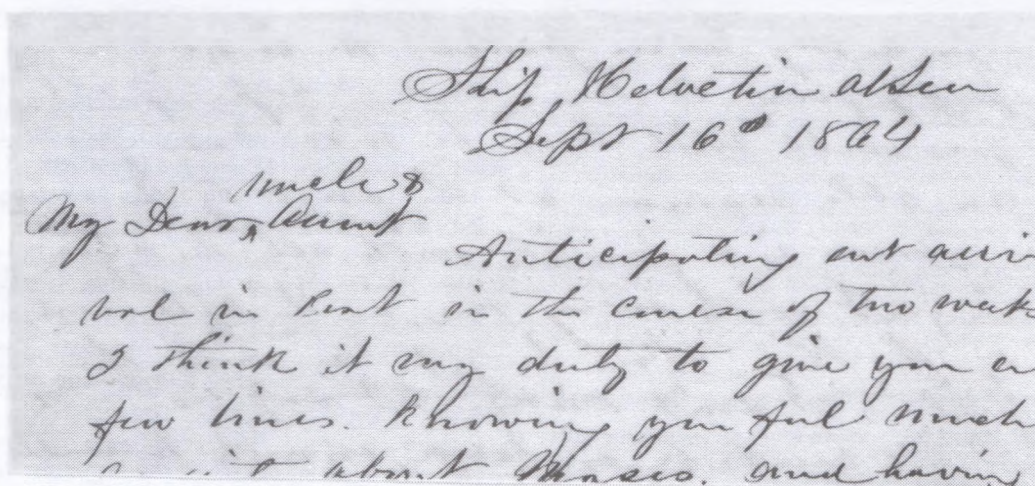 Ship Helvetia at Sea
Sept 16 1864
uncle &
My Dear Aunt
Anticipating our arri
val in Port in the course of two week
I think it my duty to give you a
few lines. knowing you feel much
about Moses. and having